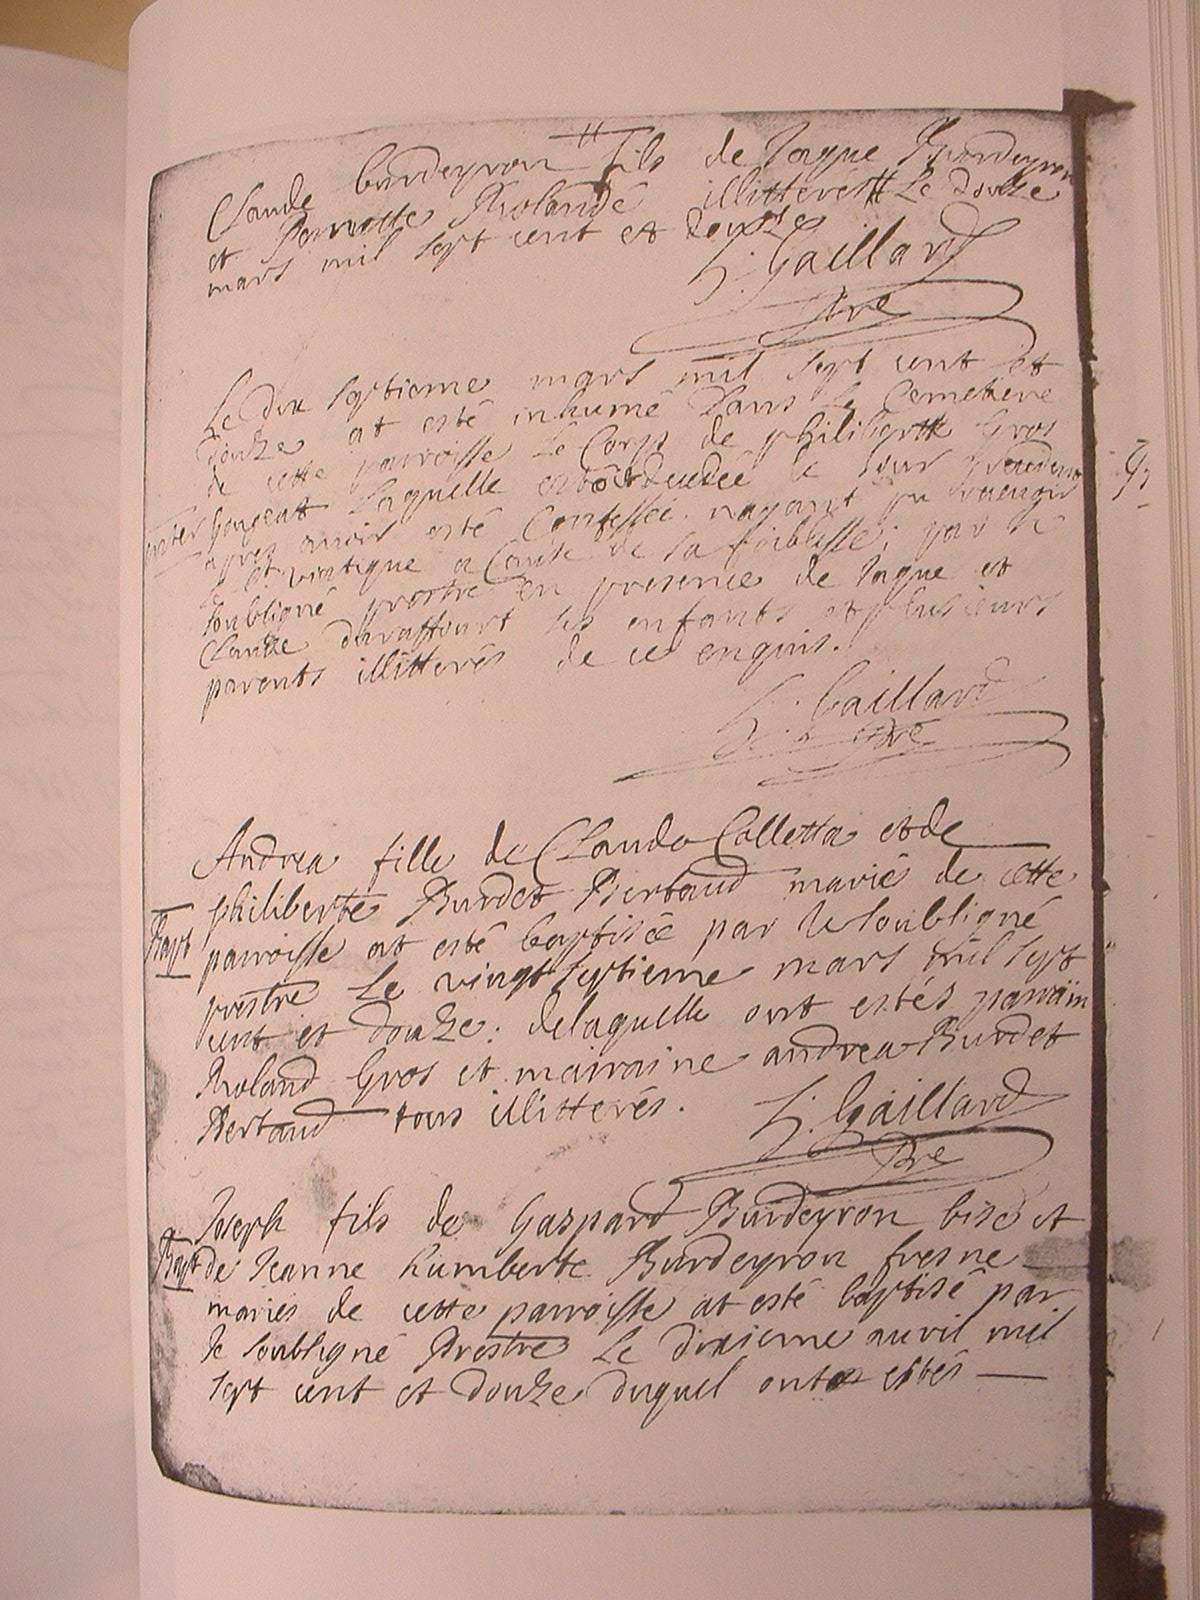 Claude burdeyron fils de Jaque Burdeyron
et Pernette Rolande illitterés Le douze
mars mil sept cent et douze
Gaillard
Pre
Le dix septieme mars mil sept cent et
douze at esté inhumé dans Le Cemetiere
de cette parroisse Le Corps de philiberte Gros
enter Laquelle le Jour
apres avoir esté Confessée nayant pu
Le viatique a Cause de sa foiblesse; par Le
soubligné prestre en presence de Jaque et
Claude duraffourt ses enfants et plusieurs
parents illitterés de ce enquis.
Gaillard
Pre
Andrea fille de Claude Colletta et de
philiberte Burdet Bertaud mariés de cette
Bapt parroisse at esté baptisée par Le soubligné
prestre Le vingt septieme mars mil sept
cent et douze: de laquelle ont estés parrain
Roland Gros et mairaine andrea Burdet
Bertaud tous illitterés.
Gaillard
Pre
Joseph fils de Gaspard Burdeyron bise et
Bapt de Jeanne humberte Burdeyron fresne
mariés de cette parroisse at esté baptisé par
Le soubligné Prestre Le dixieme auvril mil
sept cent et douze duquel ont estés